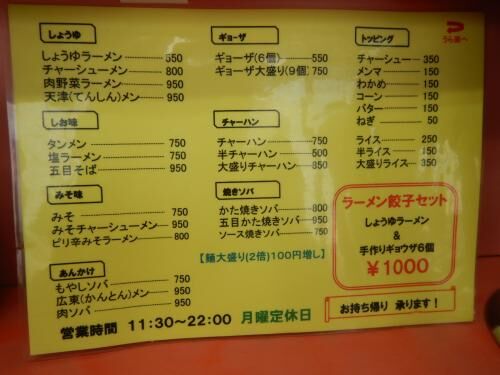 しょうゆ
しょうゆラーメン 550
チャーシューメン 800
肉野菜ラーメン 950
天津(てんしん)メン 950
しお味
タンメン 750
塩ラーメン 750
五目そば 950
みそ味
みそ 750
みそチャーシューメン 950
ピリ辛みそラーメン 800
あんかけ
もやしソバ 750
広東(かんとん)メン 950
肉ソバ 950
ギョーザ
ギョーザ(6個) 550
ギョーザ大盛り(9個) 750
チャーハン
チャーハン 750
半チャーハン 500
大盛りチャーハン 850
焼きソバ
かた焼きソバ 800
五目かた焼きソバ 950
ソース焼きソバ 750
【麺大盛り(2倍)100円増し】
トッピング
うら面へ
チャーシュー 350
メンマ 150
わかめ 150
コーン 150
バター 150
ねぎ 50
ライス 250
半ライス 150
大盛りライス 350
ラーメン餃子セット
しょうゆラーメン
&
手作りギョウザ6個
¥1000
お持ち帰り 承ります!
営業時間 11:30~22:00 月曜定休日